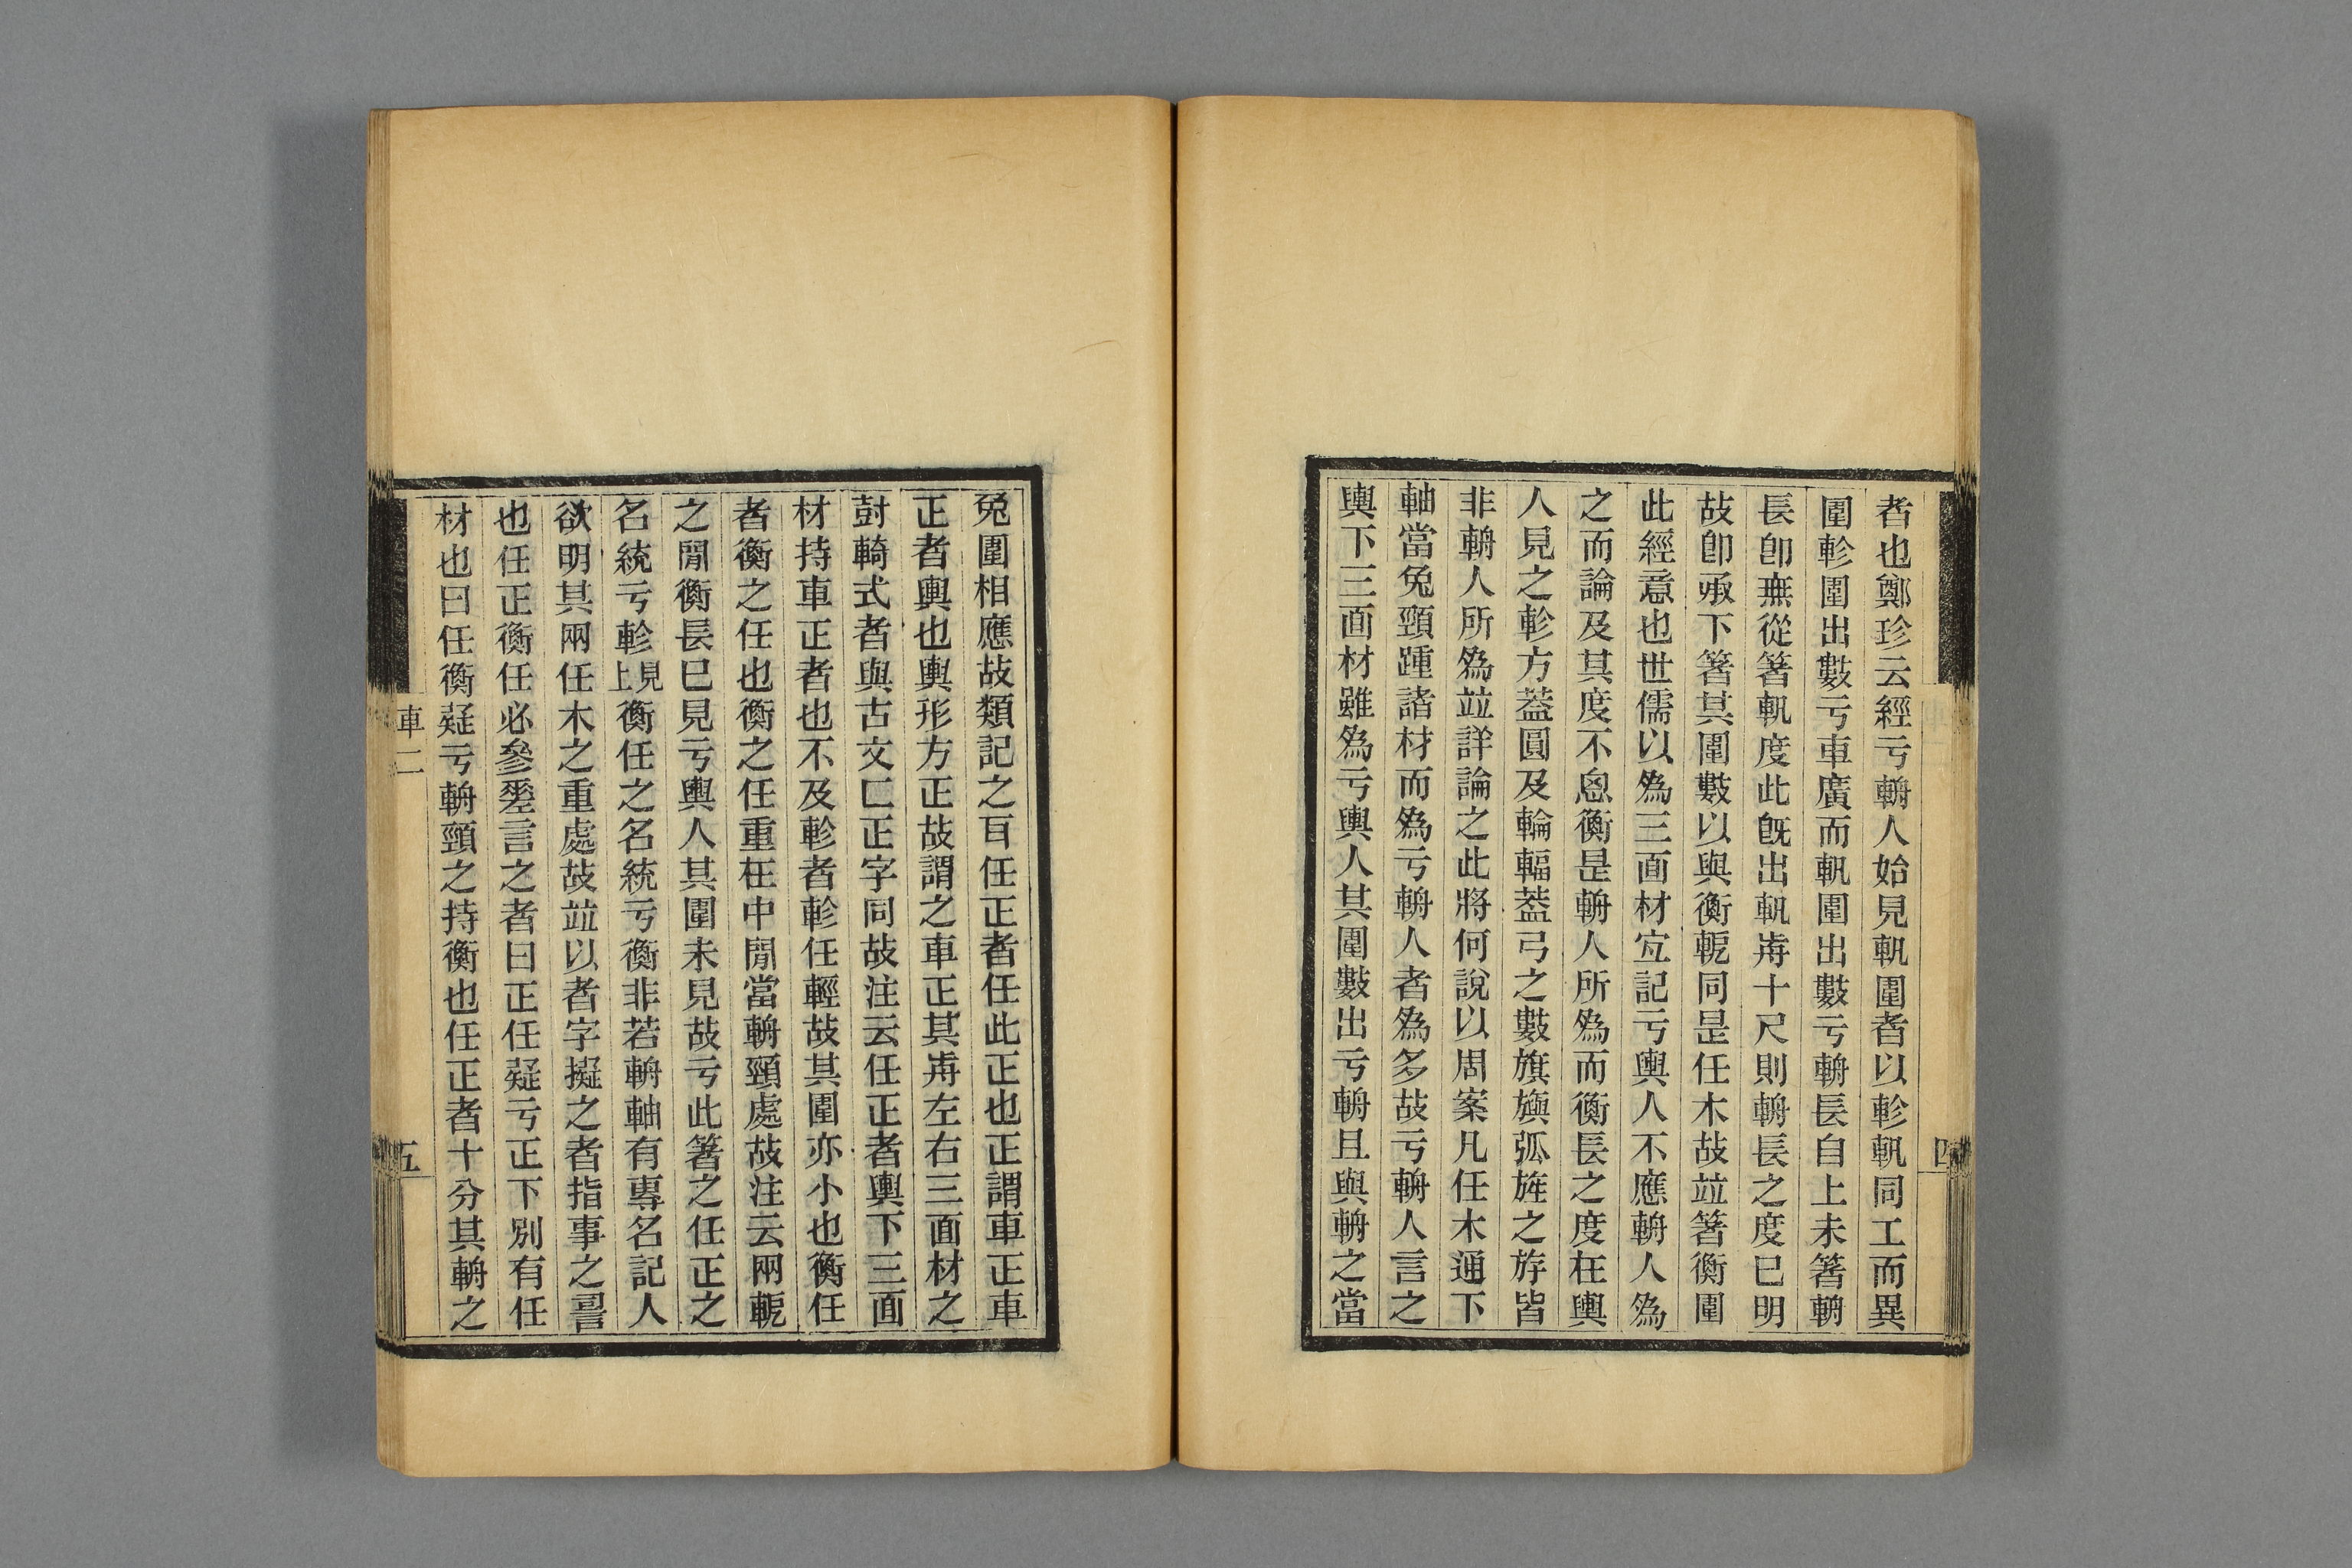 者也鄭珍云經亏輈人始見軓圍者以軫軓同工而異
圍軫圍出數亏車廣而軓圍出數亏輈長自上未箸輈
長卽無從箸軓度此旣出軓歬十尺則輈長之度已明
故卽承下箸其圍數以與衡軶同是任木故竝箸衡圍
此經意也世儒以為三面材宐記亏輿人不應輈人為
之而論及其度不悤衡是輈人所為而衡長之度在輿
人見之軫方蓋圓及輪輻蓋弓之數旗旟弧旌之斿皆
非輈人所為竝詳論之此將何說以周案凡任木通下
軸當兔頸踵諸材而為亏輈人者為多故亏輈人言之
輿下三面材雖為亏輿人其圍數出亏輈且與輈之當
四
兔圍相應故類記之耳任正者任此正也正謂車正車
正者輿也輿形方正故謂之車正其歬左右三面材之
尌輢式者與古文匸正字同故注云任正者輿下三面
材持車正者也不及軫者軫任輕故其圍亦小也衡任
者衡之任也衡之任重在中閒當輈頸處故注云兩軶
之閒衡長巳見亏輿人其圍未見故亏此箸之任正之
名統亏軫見上衡任之名統亏衡非若輈軸有專名記人
欲明其兩任木之重處故竝以者字擬之者指事之䛐
也任正衡任必參差言之者曰正任疑亏正下別有任
材也曰任衡疑亏輈頸之持衡也任正者十分其輈之
車二
五